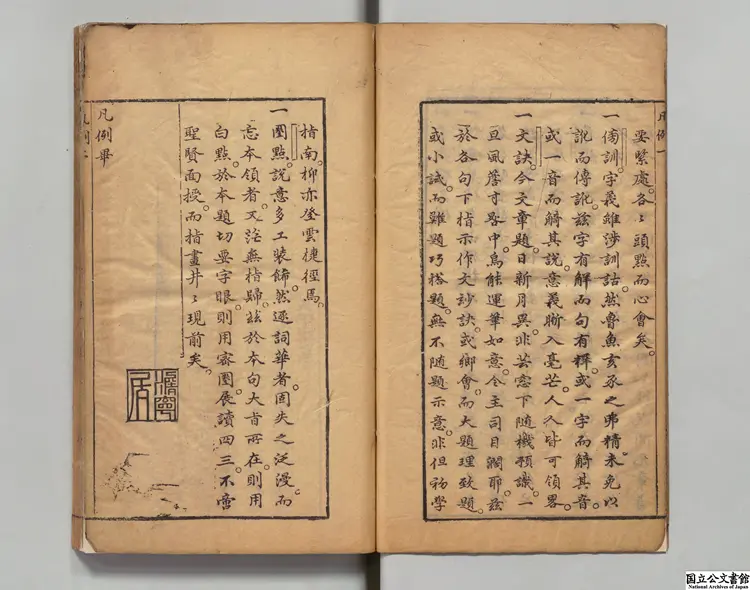 凡例一
要緊處。各〻頭點而心會矣。
一傍訓。字義雖涉訓詁。然魯魚亥豕之弗精。未免以
訛而傳訛。茲字有解而句有釋。或一字而觭其音。
或一音而觭其說。意義晰入毫芒。人人皆可領畧。
一文訣。今文章題。日新月異。非芸窓下隨機預識。一
旦風簷寸晷中。烏能運筆如意。今主司目濶耶。茲
於各句下指示作文玅訣。或鄉會。而大題理致題。
或小試。而難題巧搭題。無不隨題示意。非但初學
指南。抑亦登雲捷徑焉。
一圈點。說意多工裝餙。然逐詞華者。固失之泛漫。而
忘本領者。又茫無指歸。茲於本句大旨所在。則用
白點。於本題切要字眼。則用密圈。展讀四三。不啻
聖賢面授。而指畫井〻現前矣。
凡例畢
凡例二
国立公文書館
National Archives of Japan